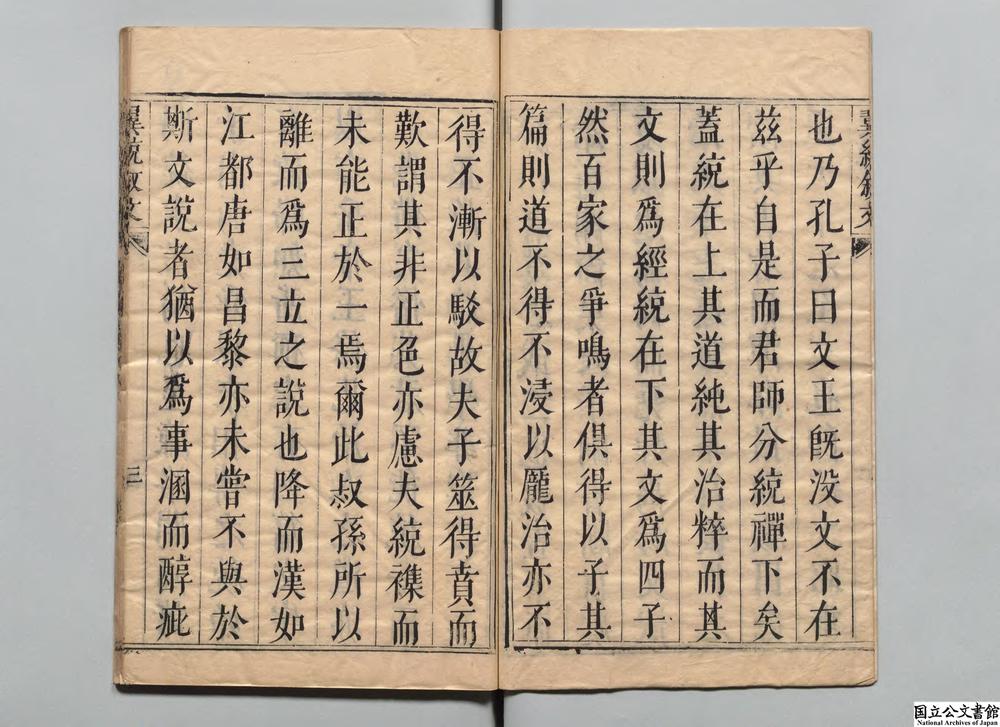 也乃孔子曰文王旣没文不在
茲乎自是而君師分統禪下矣
蓋統在上其道純其治粹而其
文則爲經統在下其文爲四子
然百家之爭鳴者俱得以子其
篇則道不得不浸以龎治亦不
得不漸以駁故夫子筮得賁而
歎謂其非正色亦慮夫統襍而
未能正於一焉爾此叔孫所以
離而爲三立之說也降而漢如
江都唐如昌黎亦未嘗不與於
斯文說者猶以爲事溷而醇疵
三
国立公文書館
National Archives of Japan